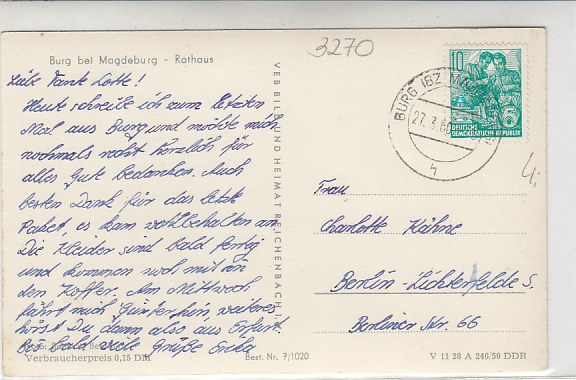 3270
Burg bei Magdeburg - Rathaus
Liebe Tante Lotte!
Heute schreibe ich zum letzten
Mal aus Burg und möchte mich
nochmals recht herzlich für
alles Gute bedanken. Auch
besten Dank für das letzte
Paket, es kam wohlbehalten an.
Die Kleider sind bald fertig
und kommen noch mit in
den Koffer. Am Mittwoch
fährt mich Günter hin, weiteres
hörst Du dann also aus Erfurt.
Bis bald viele Grüße Erika
Verbraucherpreis 0,15 DM
Best. Nr. 7/1020
VEB BILD UND HEIMAT REICHENBACH i.
10
5
DEUTSCHE
DEMOKRATISCHE REPUBLIK
BURG (BZ MAGD
27.3.60
h
4,-
Frau
Charlotte Kühne
Berlin-Lichterfelde S.
Berliner Str. 66
V 11 28 A 246/59 DDR